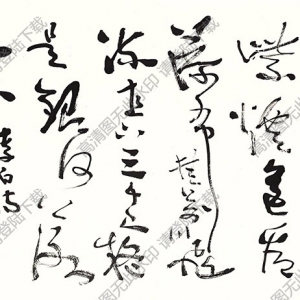 紫煙遙看
瀑布挂前川飛
流直下三千尺疑
是銀河落九
天
李白诗
高清图无此水印
登陆下载